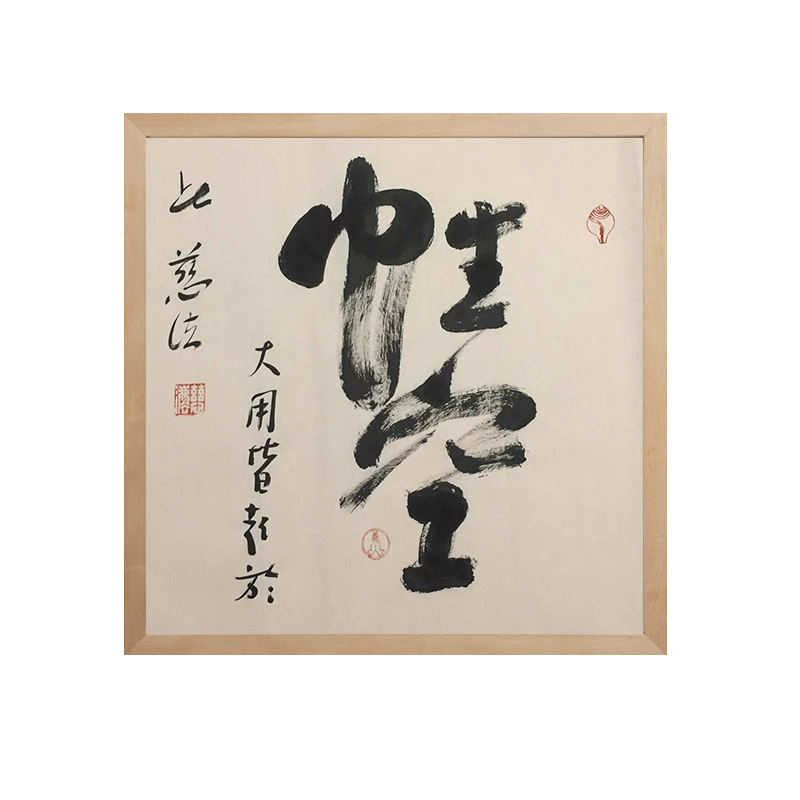 性空
大用皆起於
此 慈法